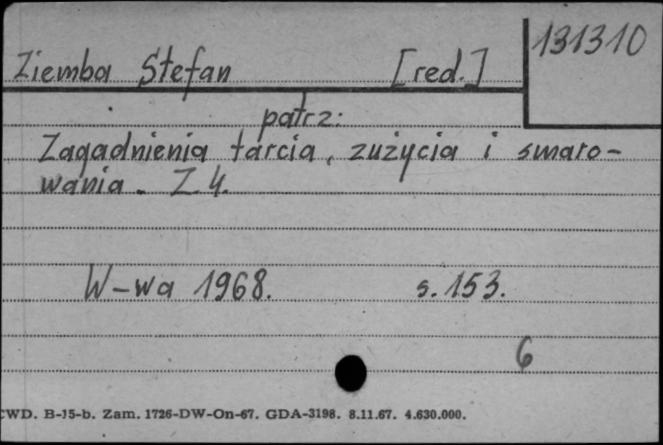 131310
Ziemba Stefan [red.]
patrz:
Zagadnienia tarcia, zużycia i smaro-
wania. Z 4.
W-wa 1968. s. 153.
6
CWD. B-15-b. Zam. 1726-DW-On-67. GDA-3198. 8.11.67. 4.630.000.